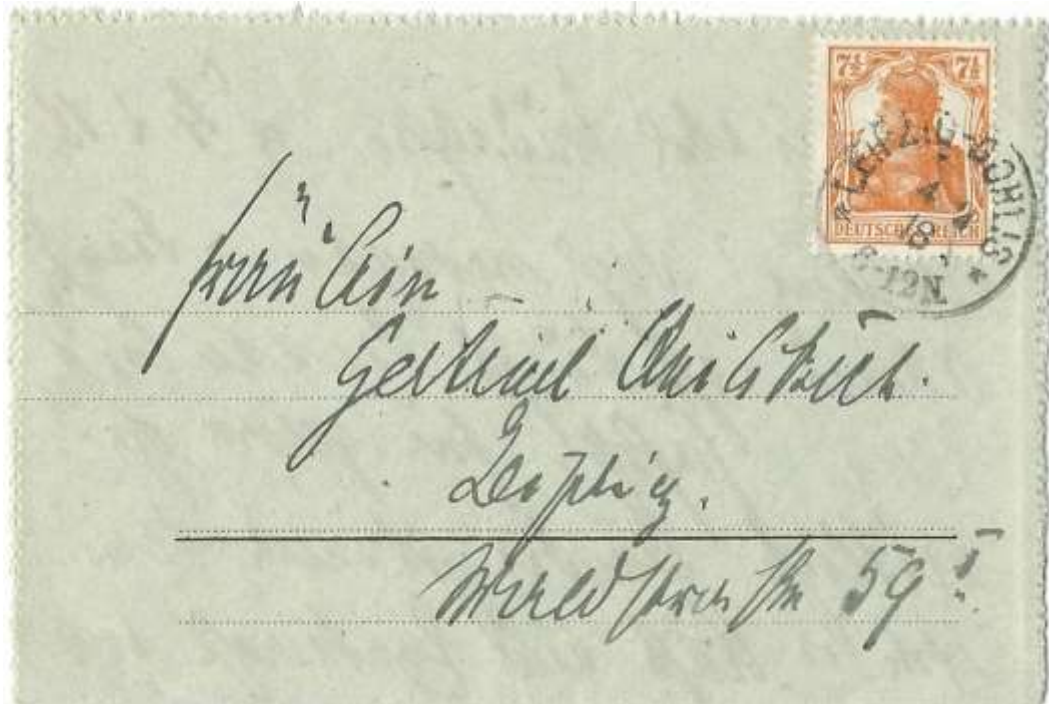 7½ 7½
DEUTSCHES REICH
* LEIPZIG-GOHLIS *
4
18
-12N.
Fräulein
Gertrud
Leipzig.
Waldstraße 59 I